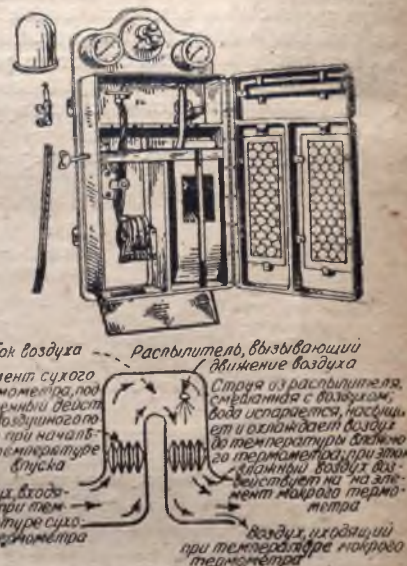 ок воздуха
Распылитель, вызывающий
движение воздуха
мент сухого
мометра, под
енный дейст
воздушного по
при началь-
температуре
впуска
Струя из распылителя,
смешанная с воздухом;
вода испаряется, насыщ
ет и охлаждает воздух
до температуры влажно
го термометра; при этом
влажный воздух воз-
действует на на эле-
мент мокрого термо-
метра
ух, входя-
при тем-
туре сухо-
ермометра
Воздух, уходящий
при температуре мокрого
термометра